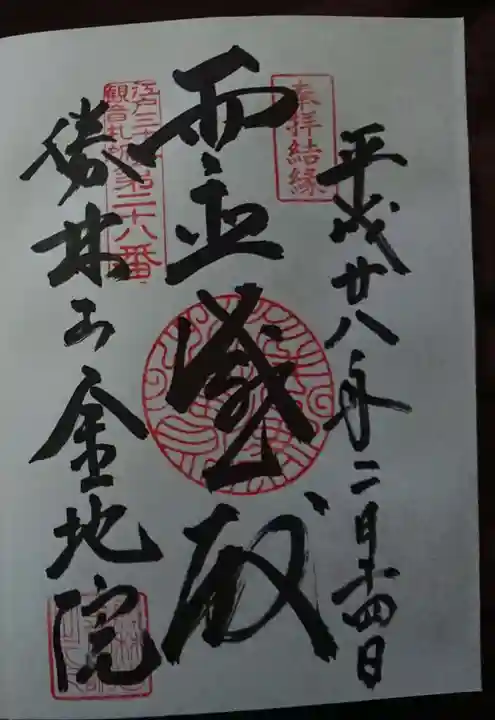 奉拝結縁
平成廿八年二月十四日
霊感殿
江戸三十三
観音札所第二十八番
勝林山金地院